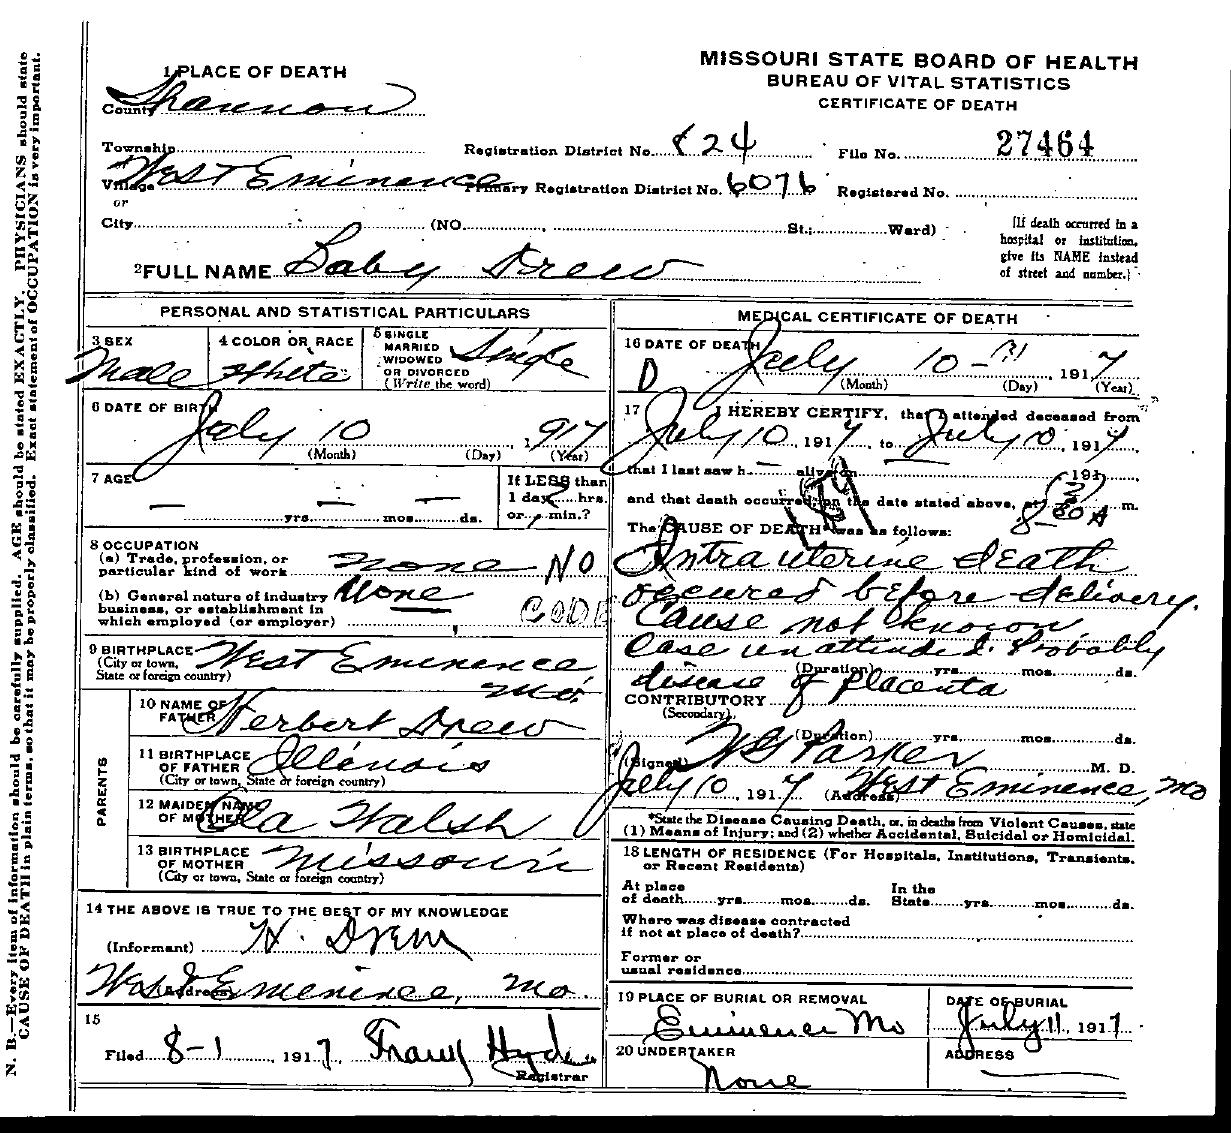 N. B.—Every item of information should be carefully supplied. AGE should be stated EXACTLY. PHYSICIANS should state
CAUSE OF DEATH in plain terms, so that it may be properly classified. Exact statement of OCCUPATION is very important.
MISSOURI STATE BOARD OF HEALTH
BUREAU OF VITAL STATISTICS
CERTIFICATE OF DEATH
1 PLACE OF DEATH
County Shannon
Township
Registration District No. 824
File No. 27464
Village West Eminence
Primary Registration District No. 6076
Registered No.
or
City (NO. St.; Ward)
[If death occurred in a
hospital or institution,
give its NAME instead
of street and number.]
2 FULL NAME Baby Drew
PERSONAL AND STATISTICAL PARTICULARS
3 SEX
Male
4 COLOR OR RACE
White
5 SINGLE
MARRIED
WIDOWED
OR DIVORCED
(Write the word)
Single
6 DATE OF BIRTH
July 10, 1917
(Month) (Day) (Year)
7 AGE
— — —
yrs. mos. ds.
If LESS than
1 day, hrs.
or min.?
8 OCCUPATION
(a) Trade, profession, or
particular kind of work none NO
(b) General nature of industry
business, or establishment in
which employed (or employer) None CODE
9 BIRTHPLACE
(City or town,
State or foreign country)
West Eminence
Mo.
PARENTS
10 NAME OF
FATHER Herbert Drew
11 BIRTHPLACE
OF FATHER
(City or town, State or foreign country)
Illinois
12 MAIDEN NAME
OF MOTHER Ola Walsh
13 BIRTHPLACE
OF MOTHER
(City or town, State or foreign country)
Missouri
14 THE ABOVE IS TRUE TO THE BEST OF MY KNOWLEDGE
(Informant) H. Drew
(Address) West Eminence, Mo.
15
Filed 8-1, 1917 Hyde
Registrar
MEDICAL CERTIFICATE OF DEATH
16 DATE OF DEATH
D July 10 - , 1917
(Month) (Day) (Year)
17 I HEREBY CERTIFY, that I attended deceased from
July 10, 1917, to July 10, 1917,
that I last saw h — alive on — , 191 ,
and that death occurred, on the date stated above, at 8-30 A m.
The CAUSE OF DEATH* was as follows:
Intra uterine death
occured before delivery.
Cause not known
Case unattended. Probably
(Duration) yrs. mos. ds.
disease of placenta
CONTRIBUTORY
(Secondary)
(Duration) yrs. mos. ds.
(Signed) Parker M. D.
July 10, 1917 (Address) West Eminence, Mo
*State the Disease Causing Death, or, in deaths from Violent Causes, state
(1) Means of Injury; and (2) whether Accidental, Suicidal or Homicidal.
18 LENGTH OF RESIDENCE (For Hospitals, Institutions, Transients,
or Recent Residents)
At place
of death yrs. mos. ds.
In the
State yrs. mos. ds.
Where was disease contracted
if not at place of death?
Former or
usual residence
19 PLACE OF BURIAL OR REMOVAL
Eminence Mo
DATE OF BURIAL
July 11, 1917
20 UNDERTAKER
None
ADDRESS